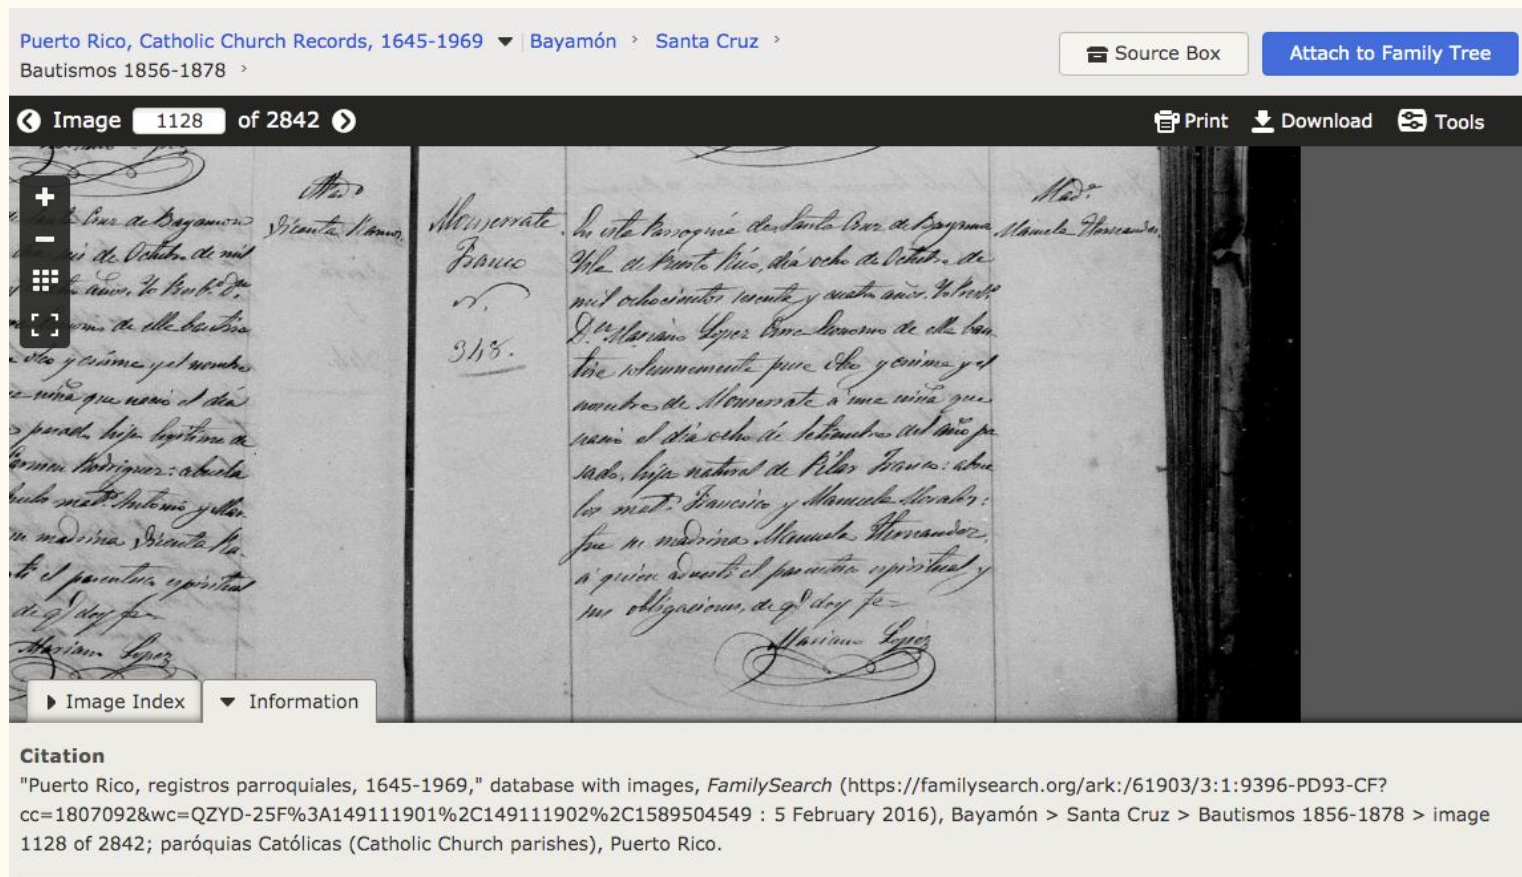 Puerto Rico, Catholic Church Records, 1645-1969
Bayamón
Santa Cruz
Bautismos 1856-1878
Source Box
Attach to Family Tree
Image 1128 of 2842
Print
Download
Tools
Cruz de Bayamon
de Octubre de mil
años. Yo Presb.o D.n
de ella bautisé
oleo y crisma y el nombre
niña que nacio el dia
pasado, hija legitima de
Carmen Rodriguez: abuela
mat.s Antonio y
madrina Vicenta
el parentesco espiritual
de q.e doy fe
Mariano Lopez
Mad.a
Vicenta Ramos
Monserrate
Franco
N.
348.
En esta Parroquia de Santa Cruz de Bayamon
Ysla de Puerto Rico, dia ocho de Octubre de
mil ochocientos sesenta y cuatro años. Yo Presb.o
D.n Mariano Lopez Cura Economo de ella bau
tise solemnemente puse oleo y crisma y el
nombre de Monserrate a una niña que
nacio el dia ocho de Setiembre del año pa
sado, hija natural de Pilar Franco: abue
los mat.s Francisco y Manuela Morales:
fue su madrina Manuela Hernandez,
á quien advertí el parentesco espiritual y
sus obligaciones, de q.e doy fe
Mariano Lopez
Mad.a
Manuela Hernandez
Image Index
Information
Citation
"Puerto Rico, registros parroquiales, 1645-1969," database with images, FamilySearch (https://familysearch.org/ark:/61903/3:1:9396-PD93-CF?
cc=1807092&wc=QZYD-25F%3A149111901%2C149111902%2C1589504549 : 5 February 2016), Bayamón > Santa Cruz > Bautismos 1856-1878 > image
1128 of 2842; paróquias Católicas (Catholic Church parishes), Puerto Rico.